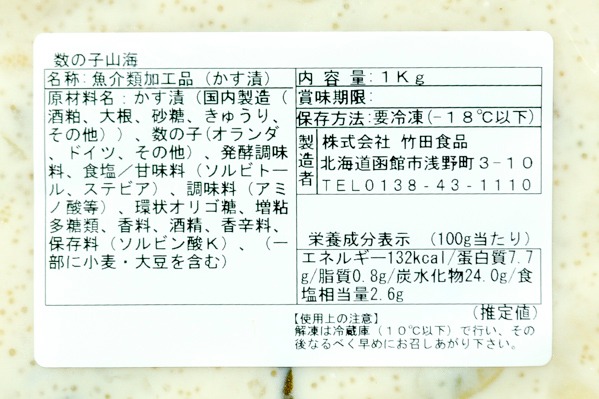 数の子山海
名称:魚介類加工品（かす漬）
原材料名：かす漬（国内製造（
酒粕、大根、砂糖、きゅうり、
その他））、数の子(オランダ
、ドイツ、その他）、発酵調味
料、食塩／甘味料（ソルビトー
ル、ステビア）、調味料（アミ
ノ酸等）、環状オリゴ糖、増粘
多糖類、香料、酒精、香辛料、
保存料（ソルビン酸K）、（一
部に小麦・大豆を含む）
内容量:1Kg
賞味期限:
保存方法:要冷凍(-18℃以下)
製造者
株式会社 竹田食品
北海道函館市浅野町3-10
TEL0138-43-1110
栄養成分表示 （100g当たり）
エネルギー132kcal/蛋白質7.7
g/脂質0.8g/炭水化物24.0g/食
塩相当量2.6g
（推定値）
【使用上の注意】
解凍は冷蔵庫（10℃以下）で行い、その
後なるべく早めにお召しあがり下さい。